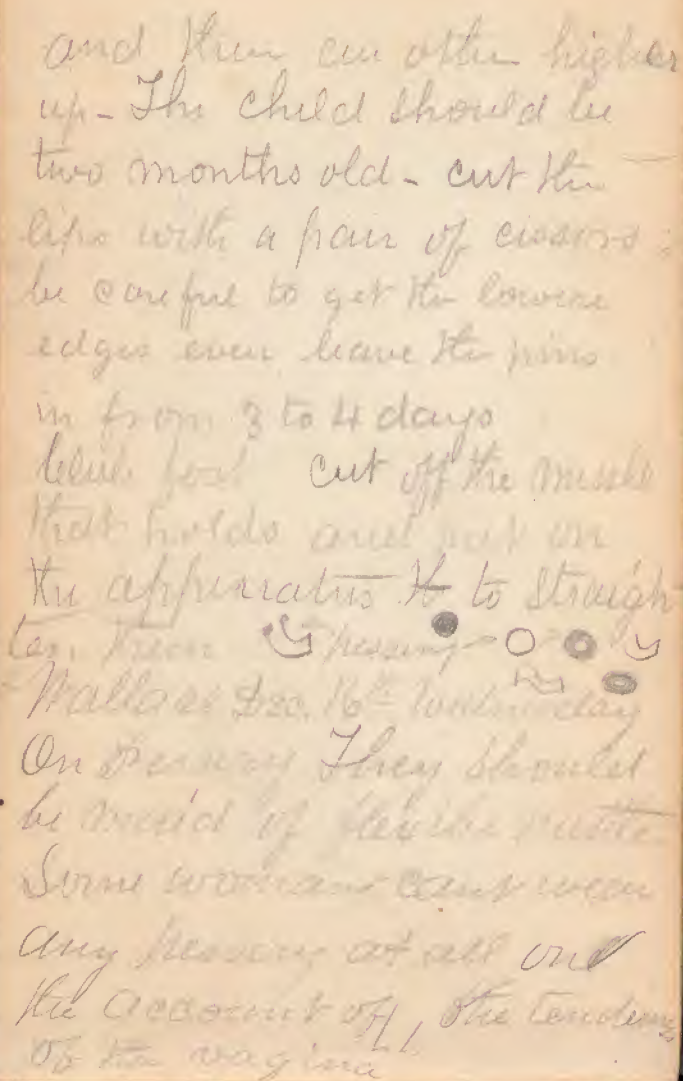 and then an other higher
up - The child should be
two months old - cut the
lips with a pair of cissors
be careful to get the lower
edges even leave the pins
in from 3 to 4 days
Club foot cut off the muscle
that holds and put on
the apparatus to to straigh
ten them pessary
Wallace Dec. 16th Wednesday
On Pessary They should
be of flexible
Some womans cant wear
any pessary at all on
the account of the tenderness
of the vagina